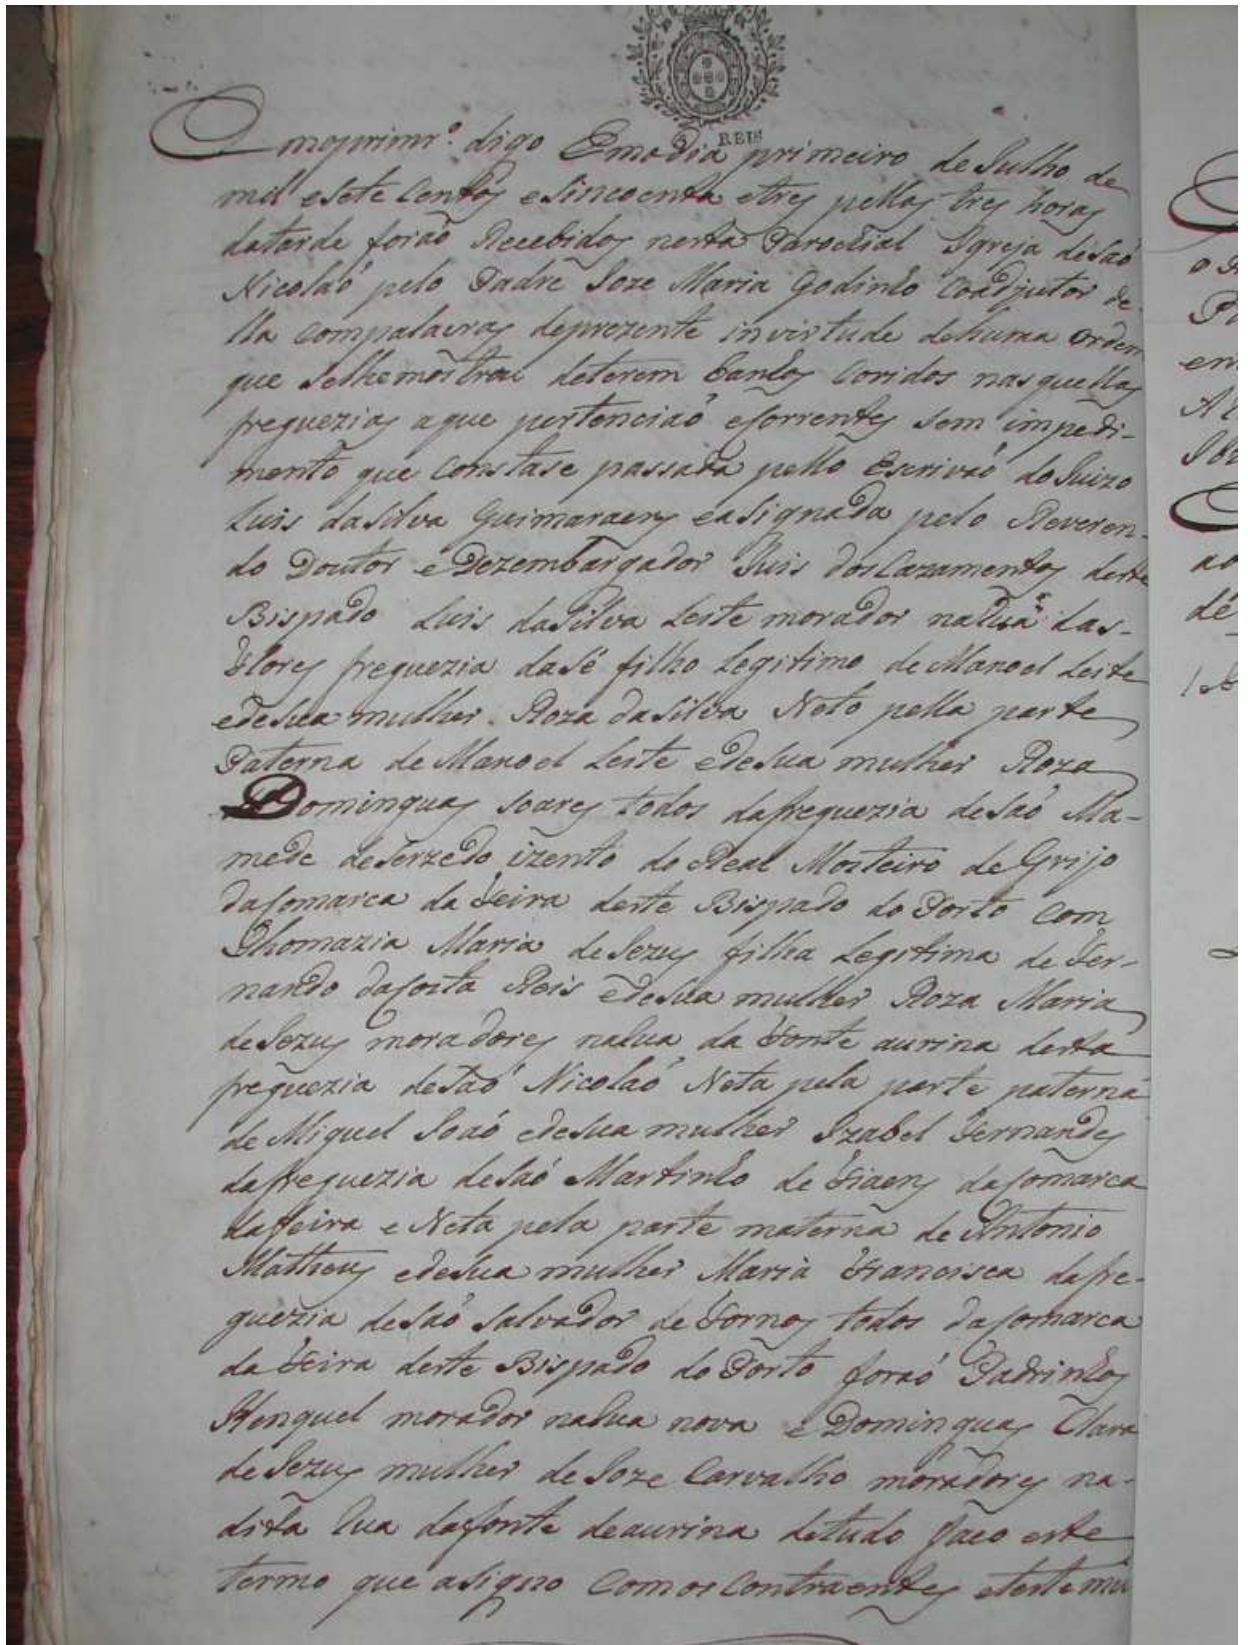 REIS
Emoprimr.º digo Emodia primeiro de Julho de
mil esete Centos esincoenta etres pellas tres horas
datarde forão Recebidos nesta Parochial Igreja desaó
Nicolaó pelo Padre Joze Maria Godinho Coadjutor de-
lla Compalavras deprezente invirtude dehuma ordem
que selhemostrou deterem banhos Coridos nasquellas
freguezias aque pertenciaó eCorrentes sem impedi-
mento que Constase passada pello Escrivaó doJuizo
Luis dasilva Guimaraens easignada pelo Reveren-
do Doutor eDezembargador Juis dosCazamentos deste
Bispado Luis dasilva Leite morador naRua das-
Flores freguezia dasé filho Legitimo de Manoel Leite
edesua mulher Roza dasilva Neto pella parte
Paterna de Manoel Leite edesua mulher Roza
Dominguas soares todos dafreguezia desaó Ma-
mede deserzedo izento do Real Mosteiro de Grijo
daComarca da Feira deste Bispado do Porto Com
Thomazia Maria deJezus filha Legitima de Fer-
nando daCosta Reis edesua mulher Roza Maria
deJezus moradores naRua da Fonte aurina desta
freguezia desaó Nicolaó Neta pela parte paterna
de Miguel Joaó edesua mulher Izabel Fernandes
dafreguezia desaó Martinho de Fiaens daComarca
dafeira e Neta pela parte materna de Antonio
Matheus edesua mulher Maria Francisca dafre-
guezia desaó salvador de Fornos todos daComarca
da Feira deste Bispado do Porto foraó Padrinhos
Henquel morador naRua nova e Dominguas Clara
deJezus mulher de Joze Carvalho moradores na-
dita Rua dafonte deaurina detudo faco este
termo que asigno Comos Contraentes etestemu